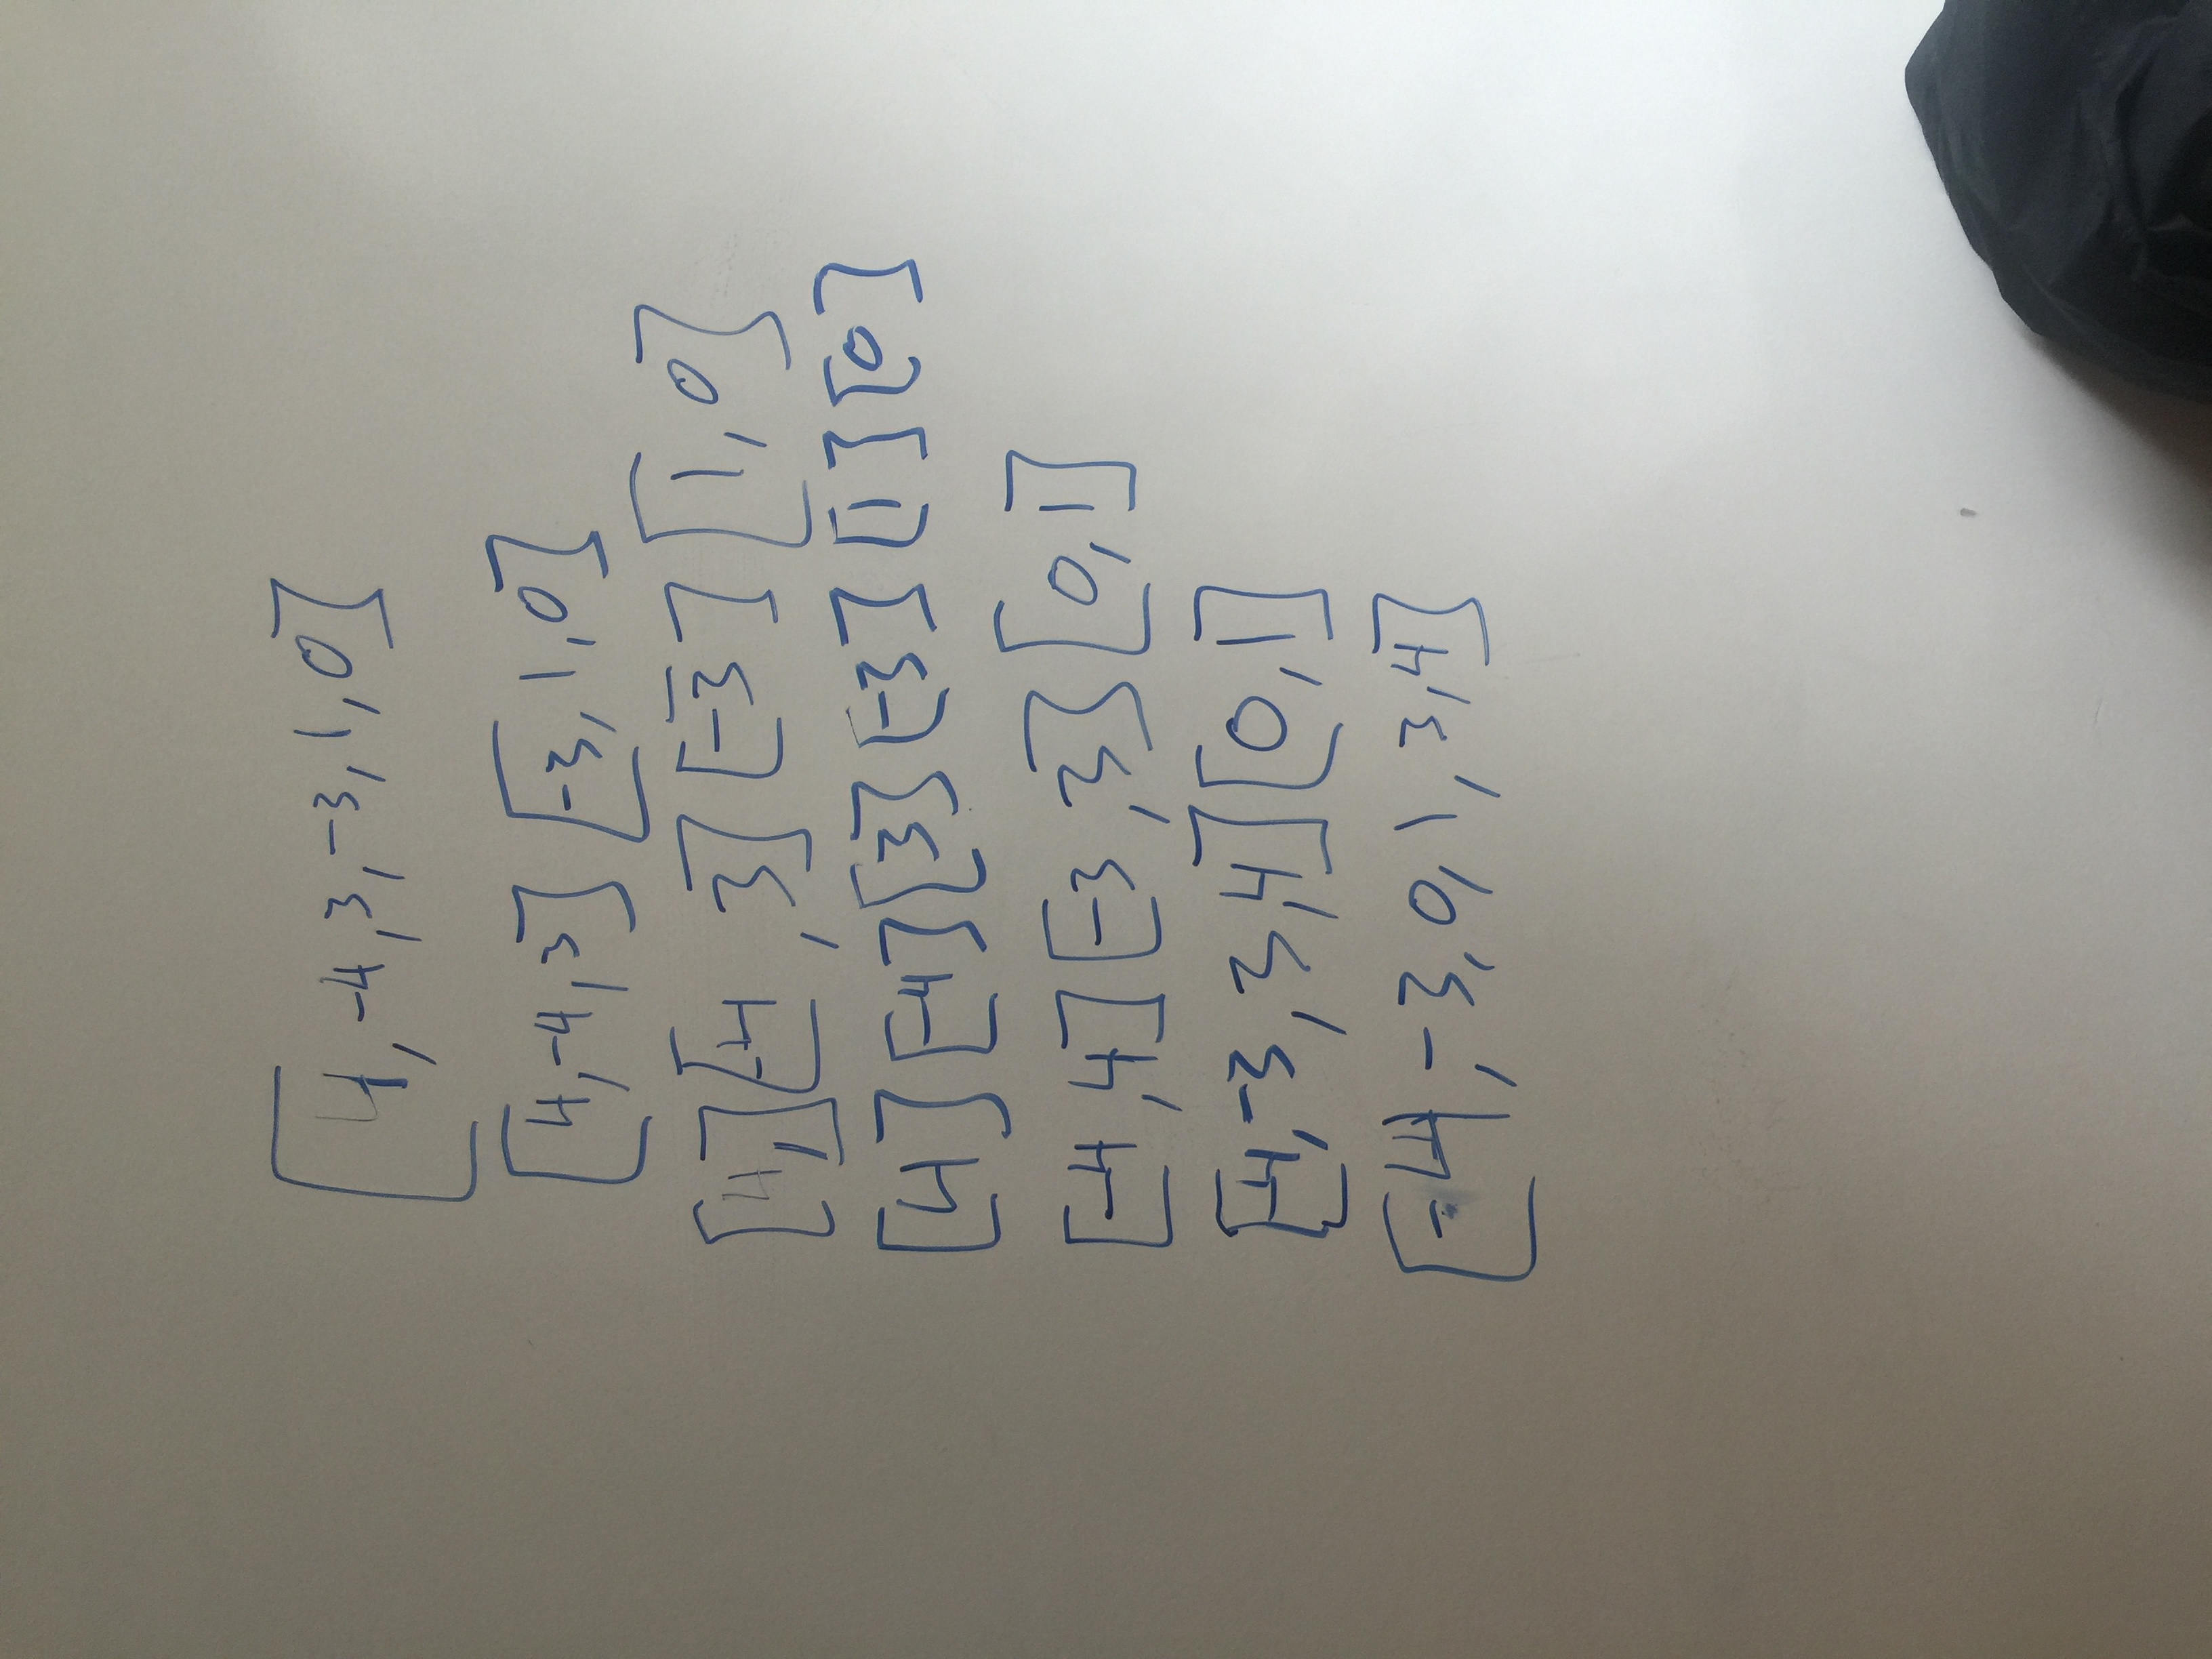 [4, -4, 3, -3, 1, 0]
[4, -4, 3] [-3, 1, 0]
[4,] [-4, 3] [-3] [1, 0]
[4] [-4] [3] [-3] [1] [0]
[-4, 4] [-3, 3] [0, 1]
[-4, -3, 3, 4] [0, 1]
[-4, -3, 0, 1, 3, 4]